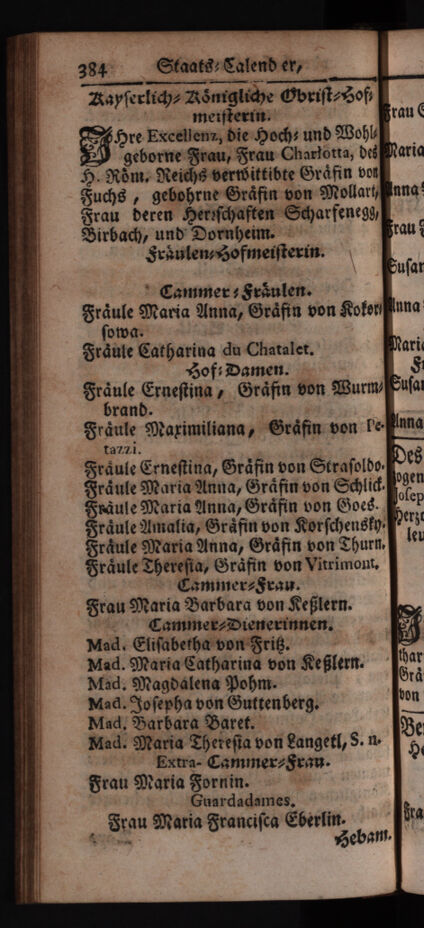 384 Staats-Calend er,
Kayserlich-Königliche Obrist-Hof-
meisterin.
Ihre Excellenz, die Hoch- und Wohl-
geborne Frau, Frau Charlotta, des
H. Röm. Reichs verwittibte Gräfin von
Fuchs, gebohrne Gräfin von Mollart,
Frau deren Herrschaften Scharfenegg,
Birbach, und Dornheim.
Fräulen-Hofmeisterin.
Cammer-Fräulen.
Fräule Maria Anna, Gräfin von Kokor-
sowa.
Fräule Catharina du Chatalet.
Hof-Damen.
Fräule Ernestina, Gräfin von Wurm-
brand.
Fräule Maximiliana, Gräfin von Pe-
tazzi.
Fräule Ernestina, Gräfin von Strasoldo.
Fräule Maria Anna, Gräfin von Schlick.
Fräule Maria Anna, Gräfin von Goes.
Fräule Amalia, Gräfin von Korschensky.
Fräule Maria Anna, Gräfin von Thurn.
Fräule Theresia, Gräfin von Vitrimont.
Cammer-Frau.
Frau Maria Barbara von Keßlern.
Cammer-Dienerinnen.
Mad. Elisabetha von Fritz.
Mad. Maria Catharina von Keßlern.
Mad. Magdalena Pohm.
Mad. Josepha von Guttenberg.
Mad. Barbara Baret.
Mad. Maria Theresia von Langetl, S. n.
Extra-Cammer-Frau.
Frau Maria Fornin.
Guardadames.
Frau Maria Francisca Eberlin.
Hebam.
Frau
Maria
Anna
Frau
Susan
Anna
Mari
Susa
Anna
Des
von